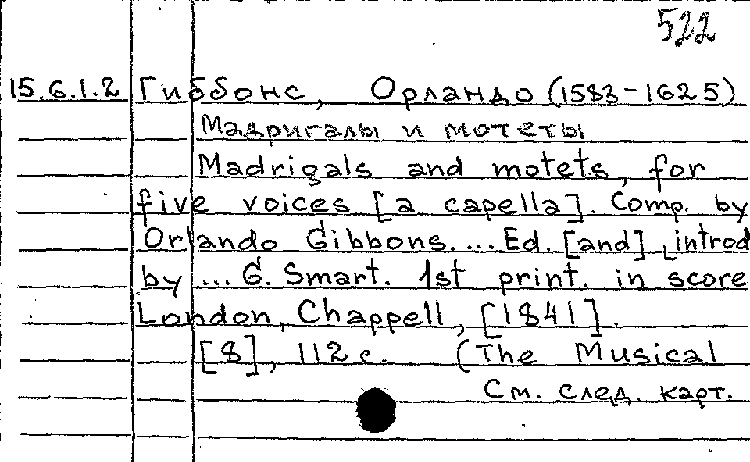 522
15.6.1.2 Гиббонс, Орландо (1583-1625)
Мадригалы и мотеты
Madrigals and motets, for
five voices [a capella]. Comp. by
Orlando Gibbons. ... Ed. [and] introd
by ... G. Smart. 1st print. in score
London, Chappell, [1841].
[8], 112 с. (The Musical
См. след. карт.